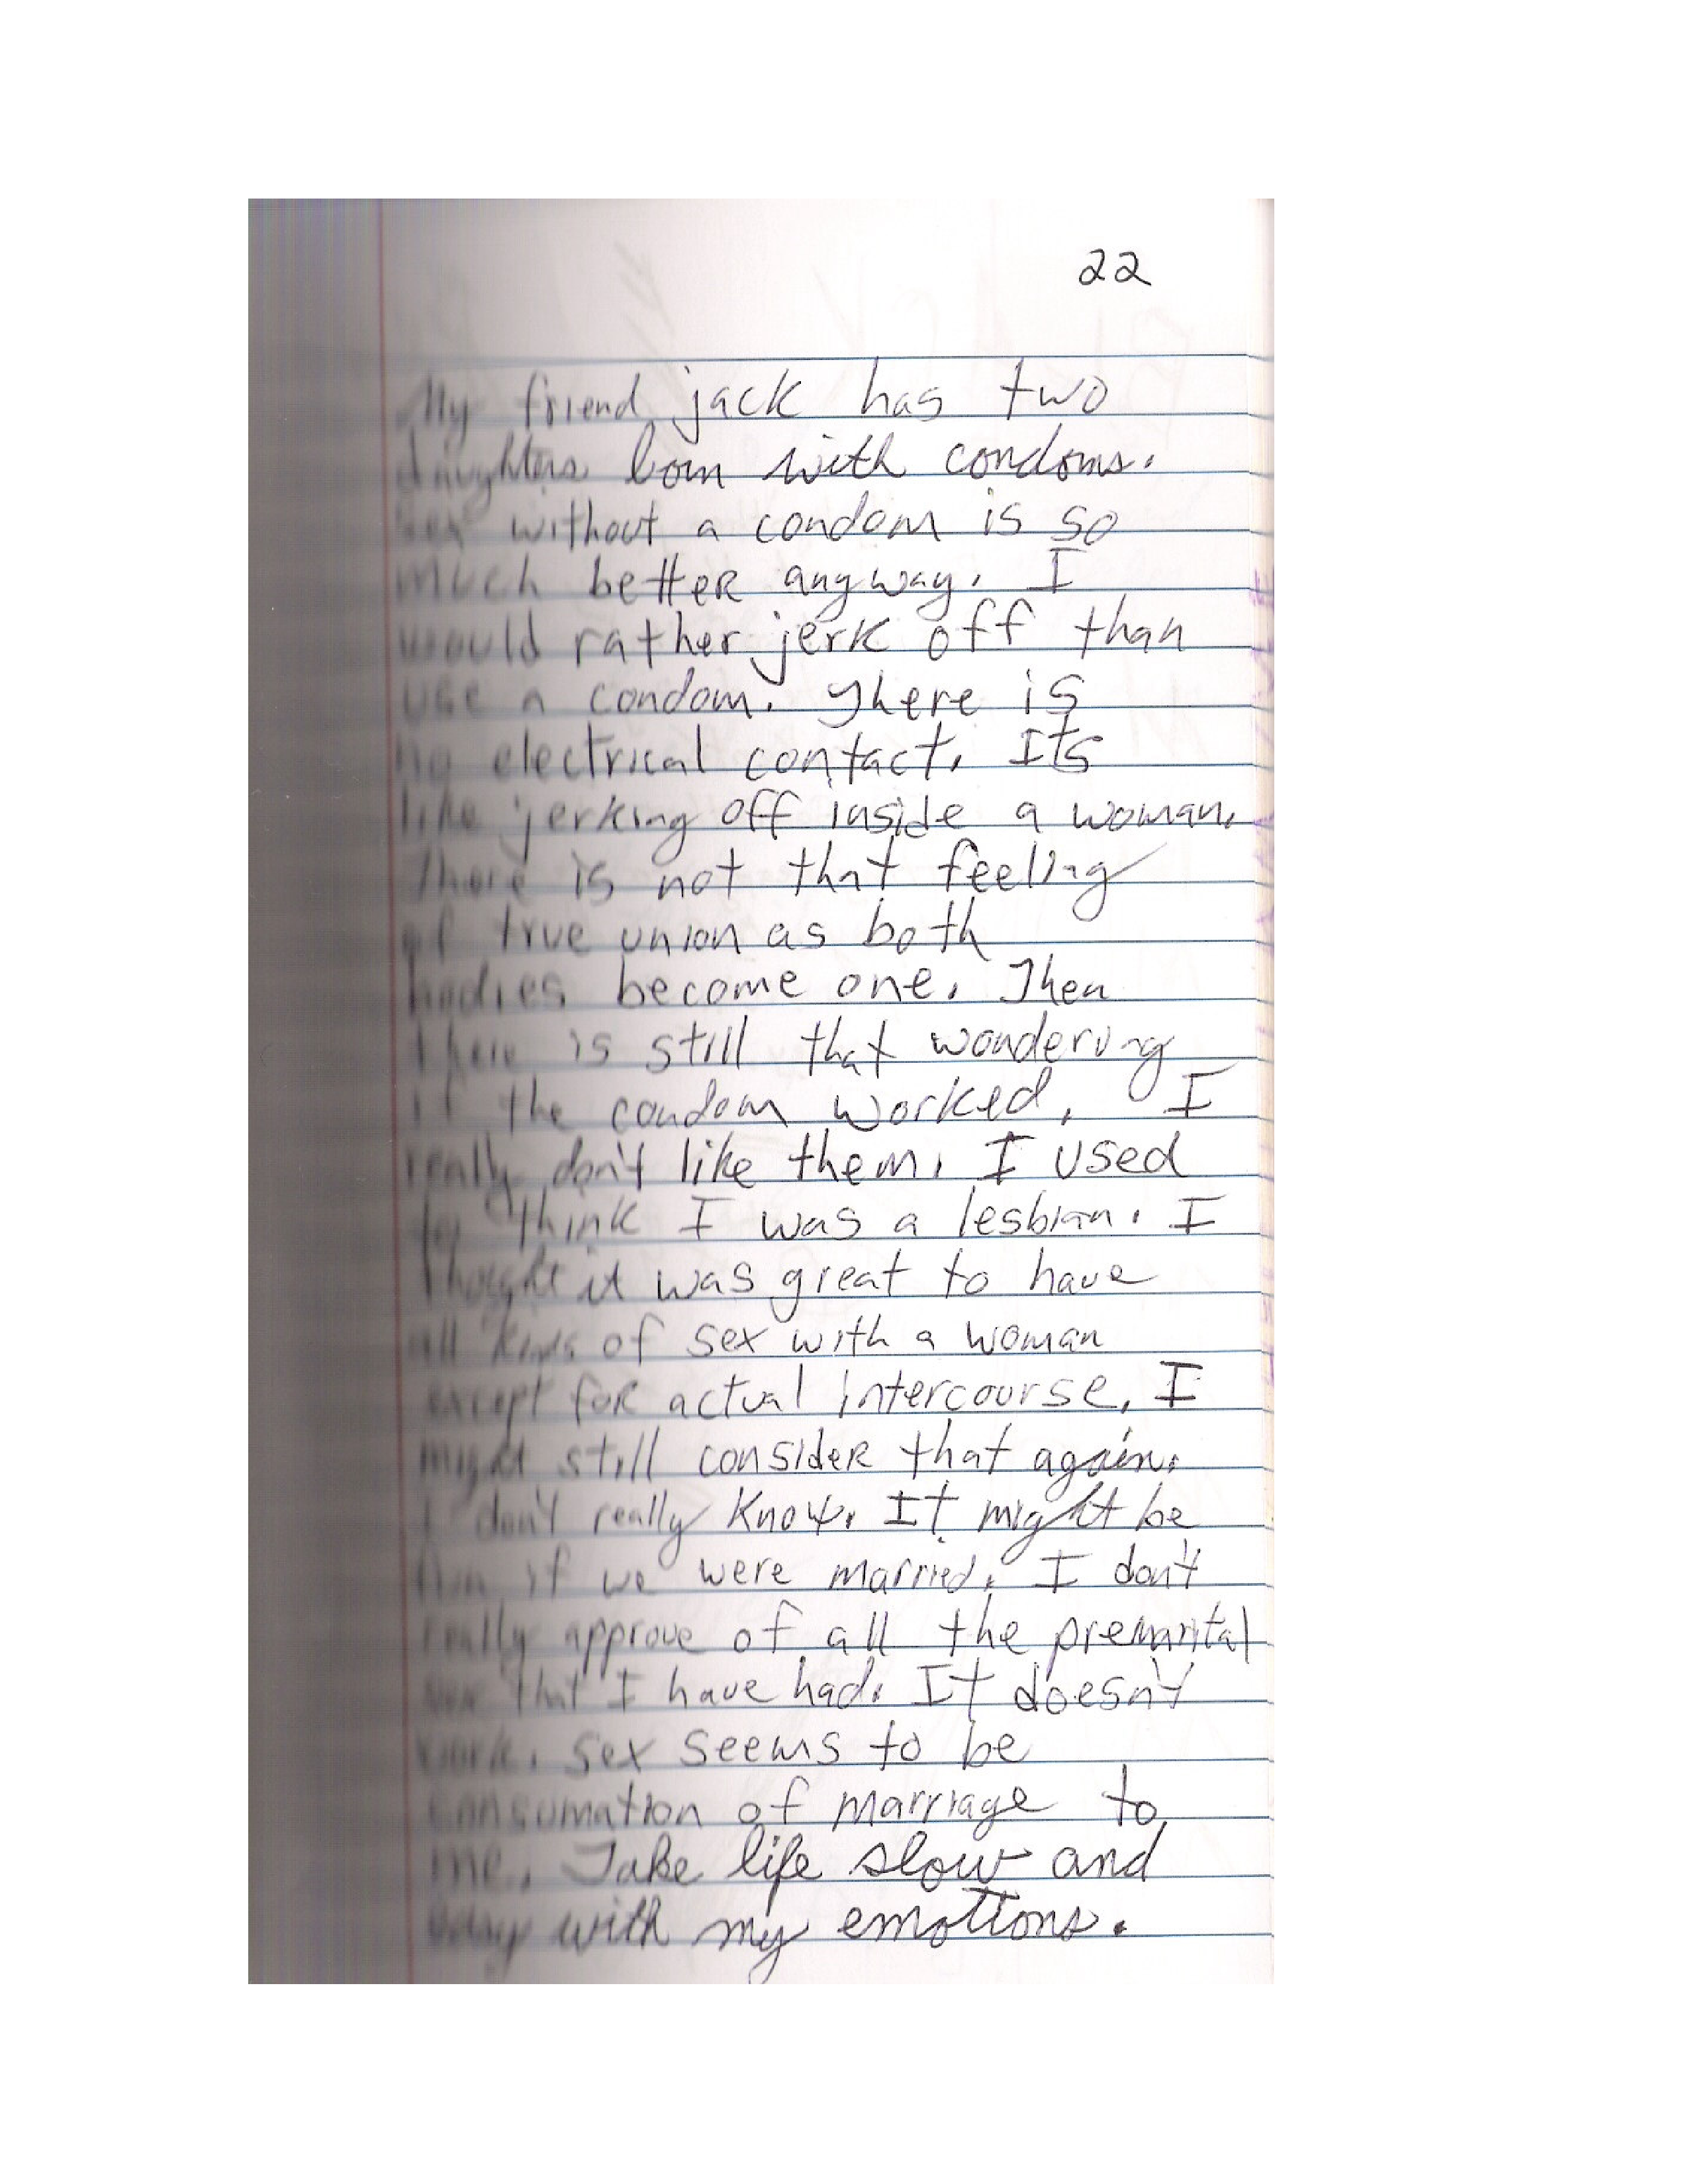 22
My friend jack has two
daughters born with condoms.
sex without a condom is so
much better anyway. I
would rather jerk off than
use a condom. There is
no electrical contact. Its
like jerking off inside a woman.
There is not that feeling
of true union as both
bodies become one. Then
there is still that wondering
if the condom worked. I
really don't like them. I used
to think I was a lesbian. I
thought it was great to have
all kinds of sex with a woman
except for actual intercourse. I
might still consider that again.
I don't really know. It might be
fun if we were married. I don't
really approve of all the premarital
sex that I have had. It doesn't
work. Sex seems to be
consumation of marriage to
me. Take life slow and
easy with my emotions.